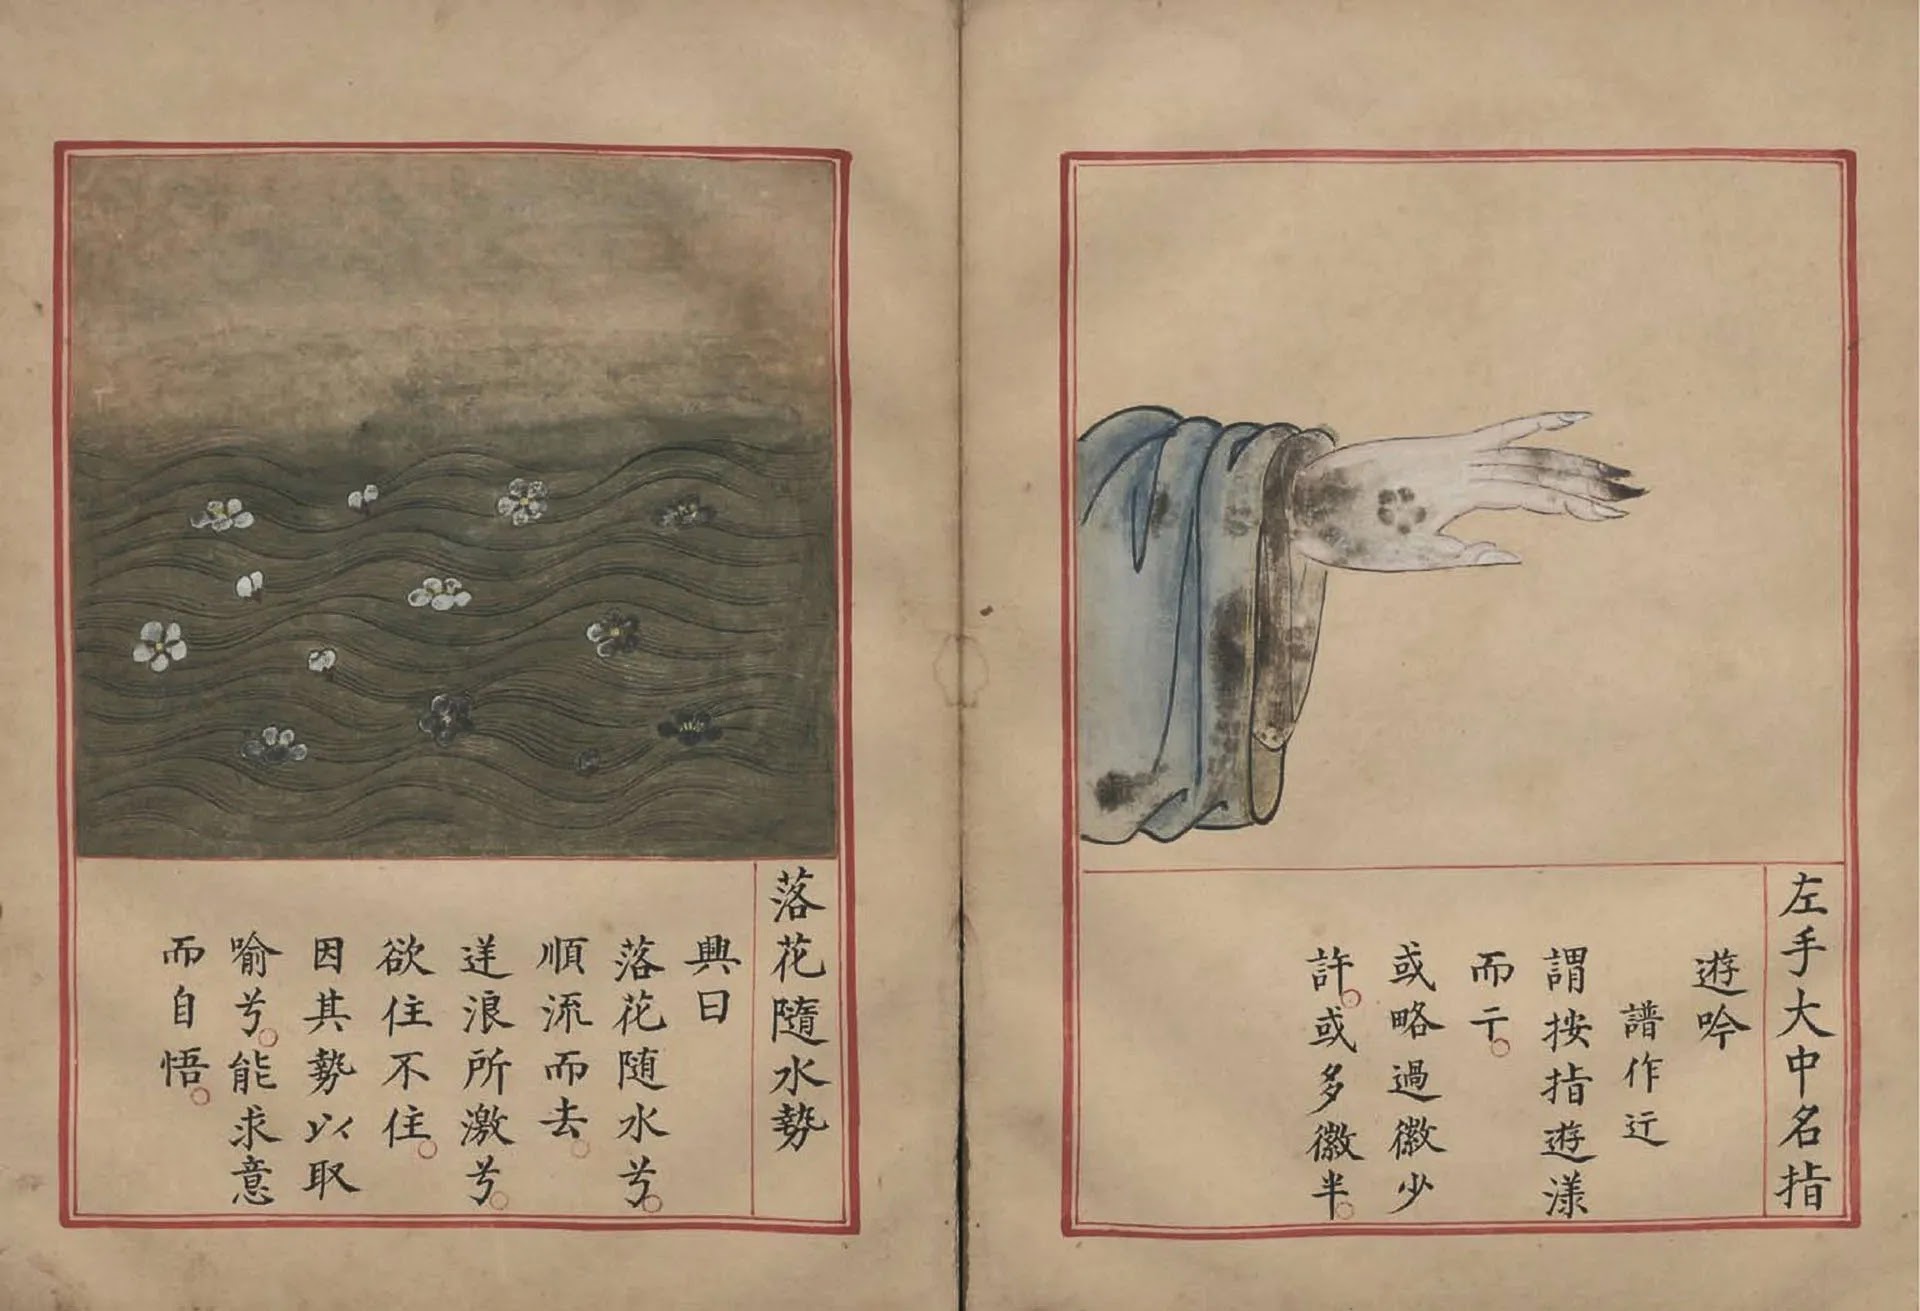 左手大中名指
遊吟
譜作
謂按指遊漾
而亍。
或略過徽少
許。或多徽半。
落花隨水勢
興曰
落花随水兮。
順流而去。
逆浪所激兮。
欲住不住。
因其勢以取
喻兮。能求意
而自悟。